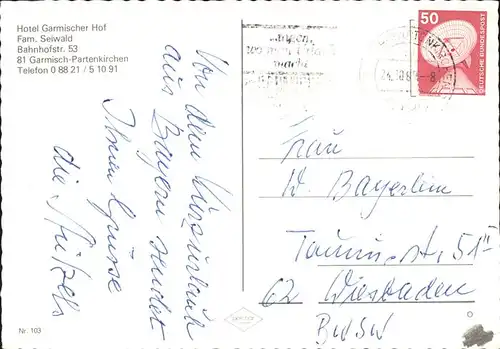 Hotel Garmischer Hof
Fam. Seiwald
Bahnhofstr. 53
81 Garmisch-Partenkirchen
Telefon 0 88 21 / 5 10 91
Von dem Kurzurlaub
aus Bayern sendet
Ihnen Grüsse
die
50
DEUTSCHE BUNDESPOST
Frau
W. Bayerlein
Taunusstr. 51
62 Wiesbaden
Nr. 103